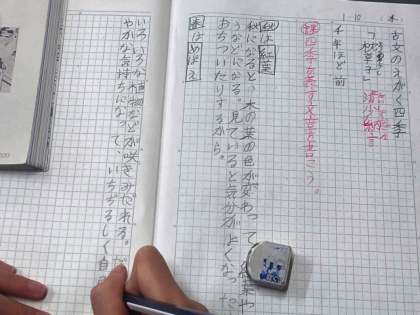 古文のえがく四季
「枕草子」清少納言
千年ほど前
四季を表す文章を書こう。
秋は紅葉
秋になると、木の葉の色が変わって
うなどになる。見ていると気分がよくなったり
おちついたりするから。
春はめばえ
いろいろな植物などが咲きみだれる。
やかな気持ちになって、いちじるしく自